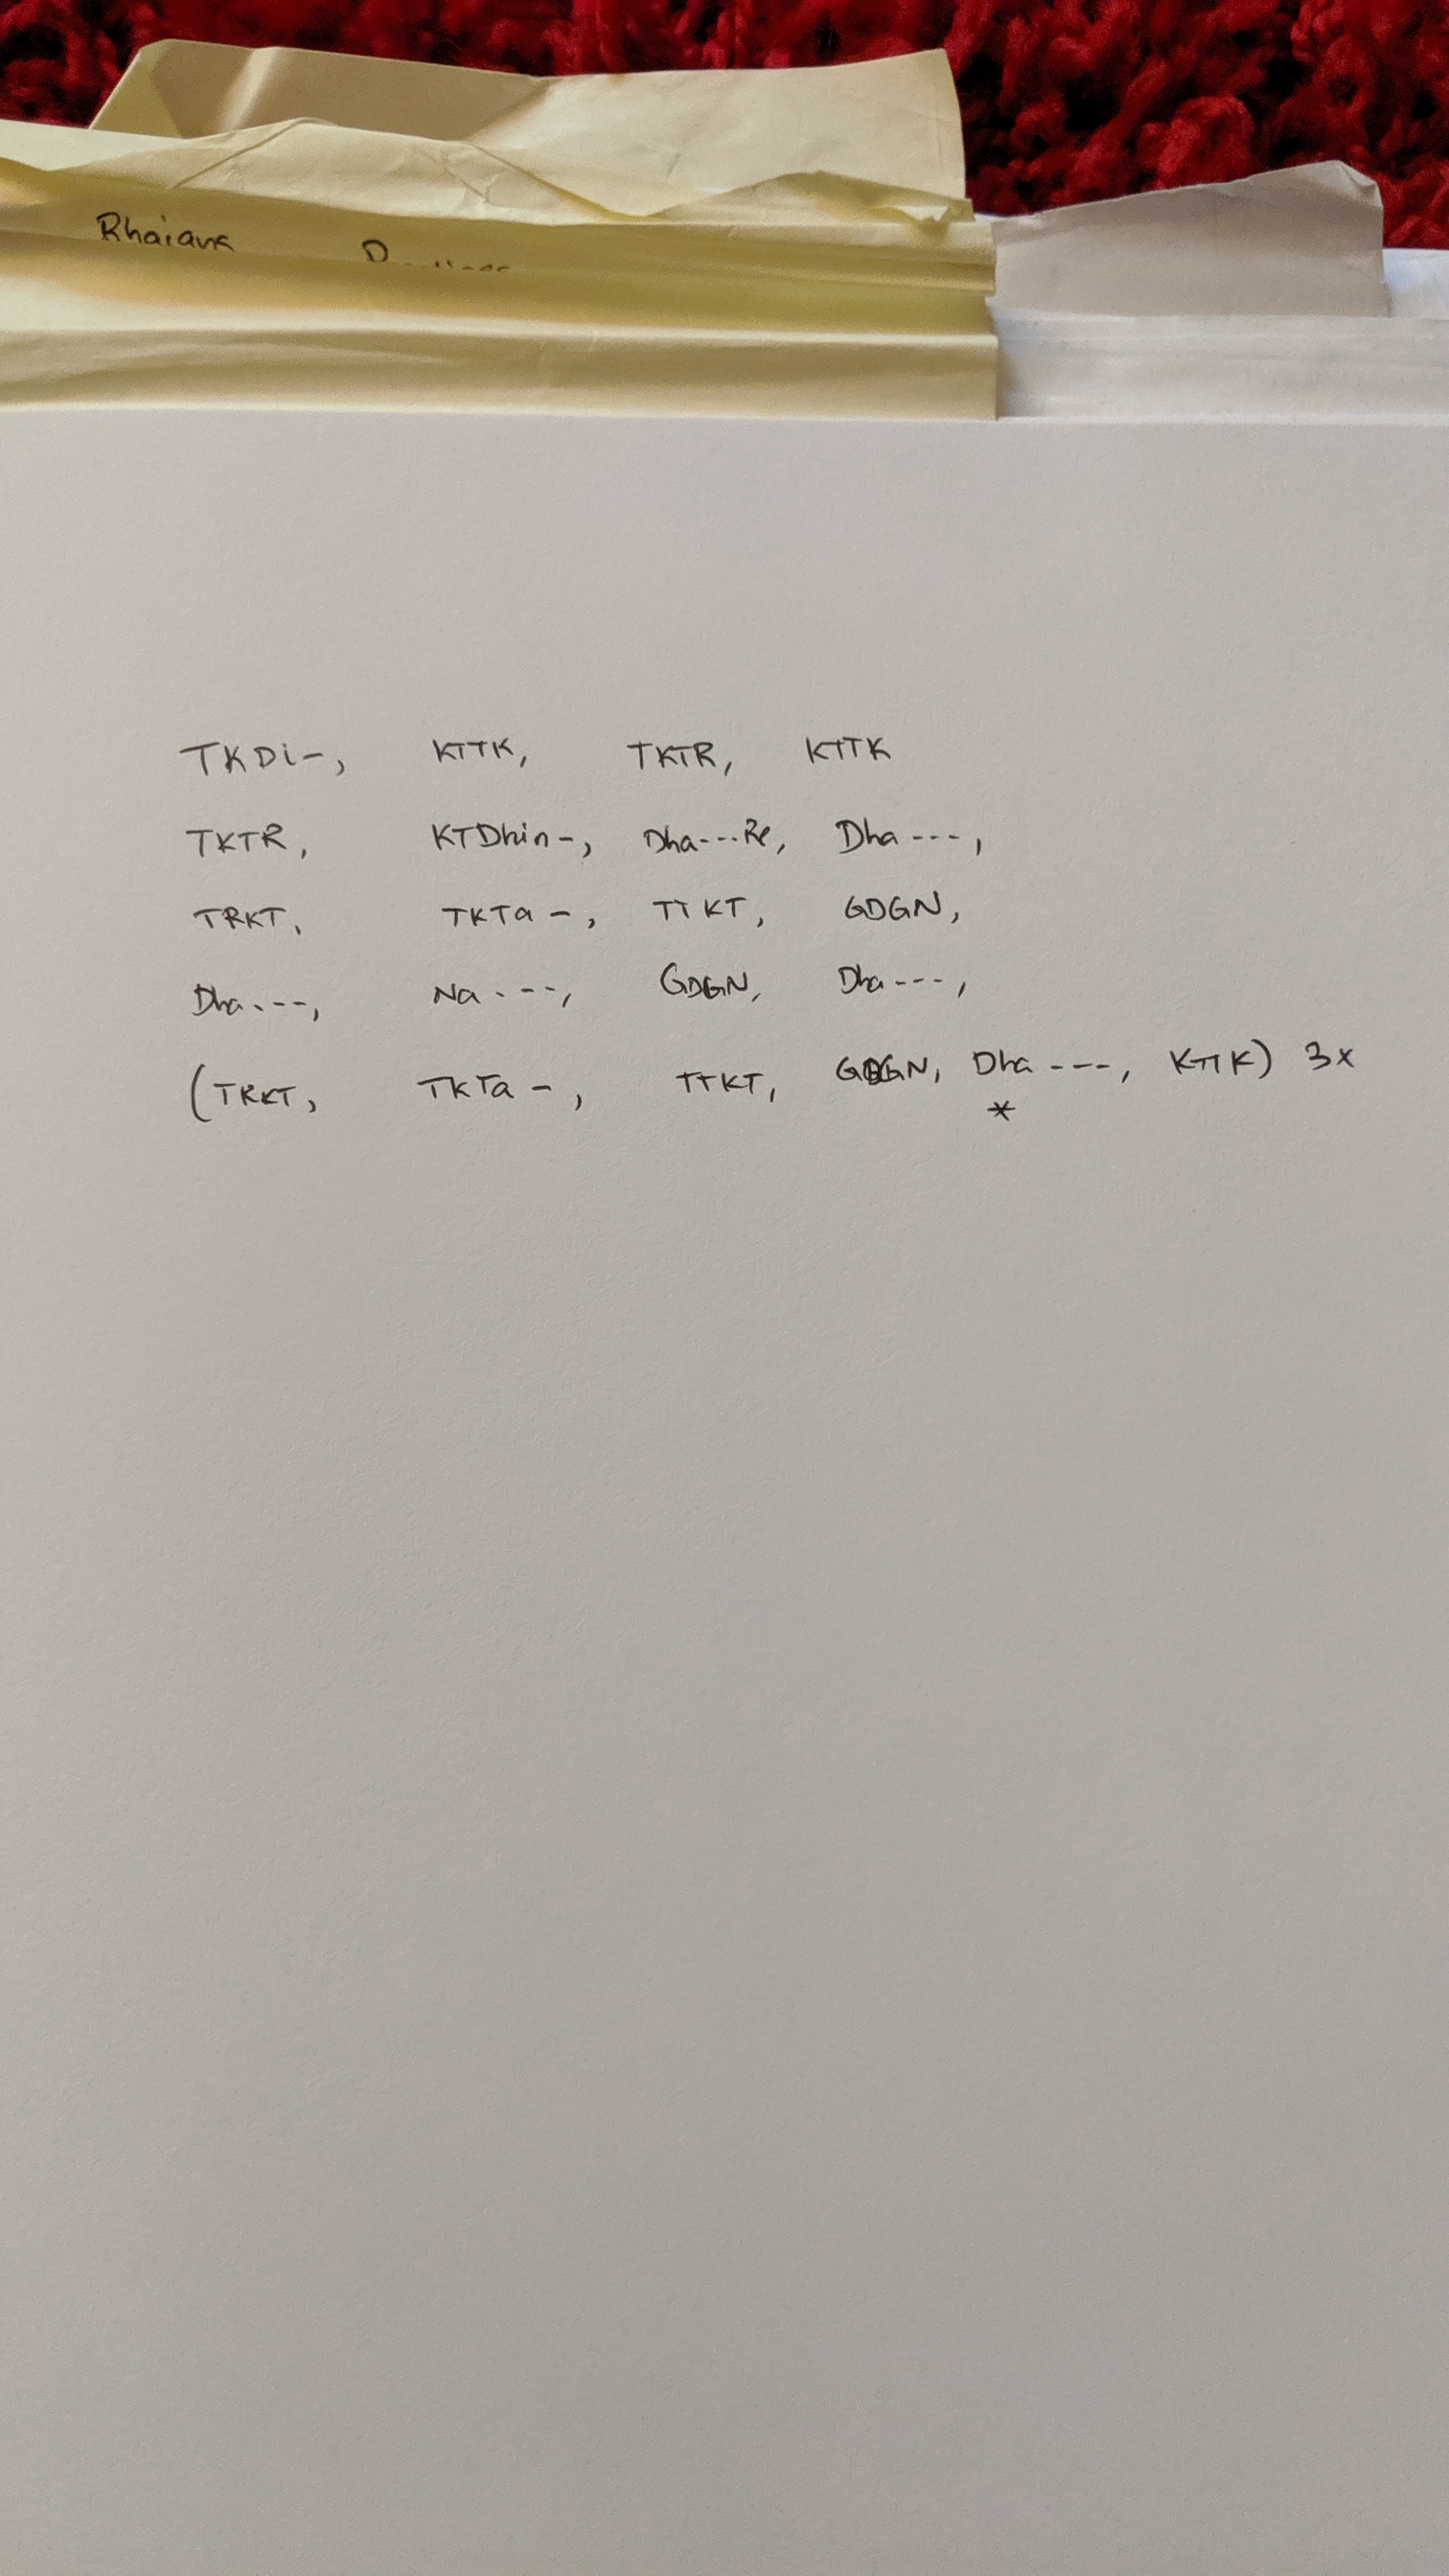 Bhajans
TKDi-, KTTK, TKTR, KTTK
TKTR, KTDhin-, Dha---Re, Dha---,
TRKT, TKTa-, TTKT, GDGN,
Dha---, Na---, GDGN, Dha---,
(TRKT, TKTa-, TTKT, GDGN, Dha---, KTTK) 3x
*